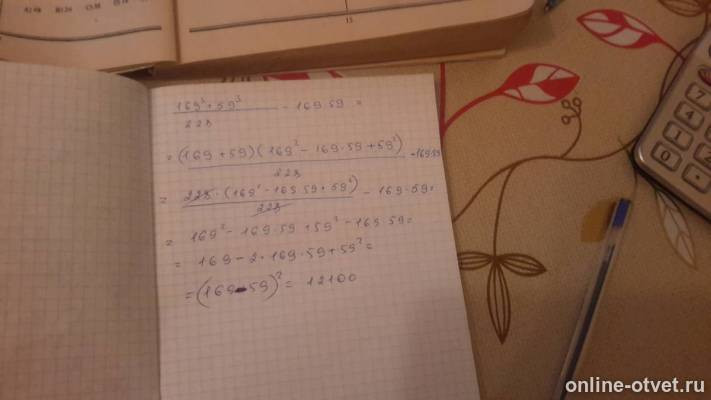 15
169³+59³ / 228 - 169·59 =
= (169+59)(169² - 169·59 + 59²) / 228 - 169·59
= 228·(169² - 169·59 + 59²) / 228 - 169·59 =
= 169² - 169·59 + 59² - 169·59 =
= 169 - 2·169·59 + 59² =
= (169-59)² = 12100
online-otvet.ru